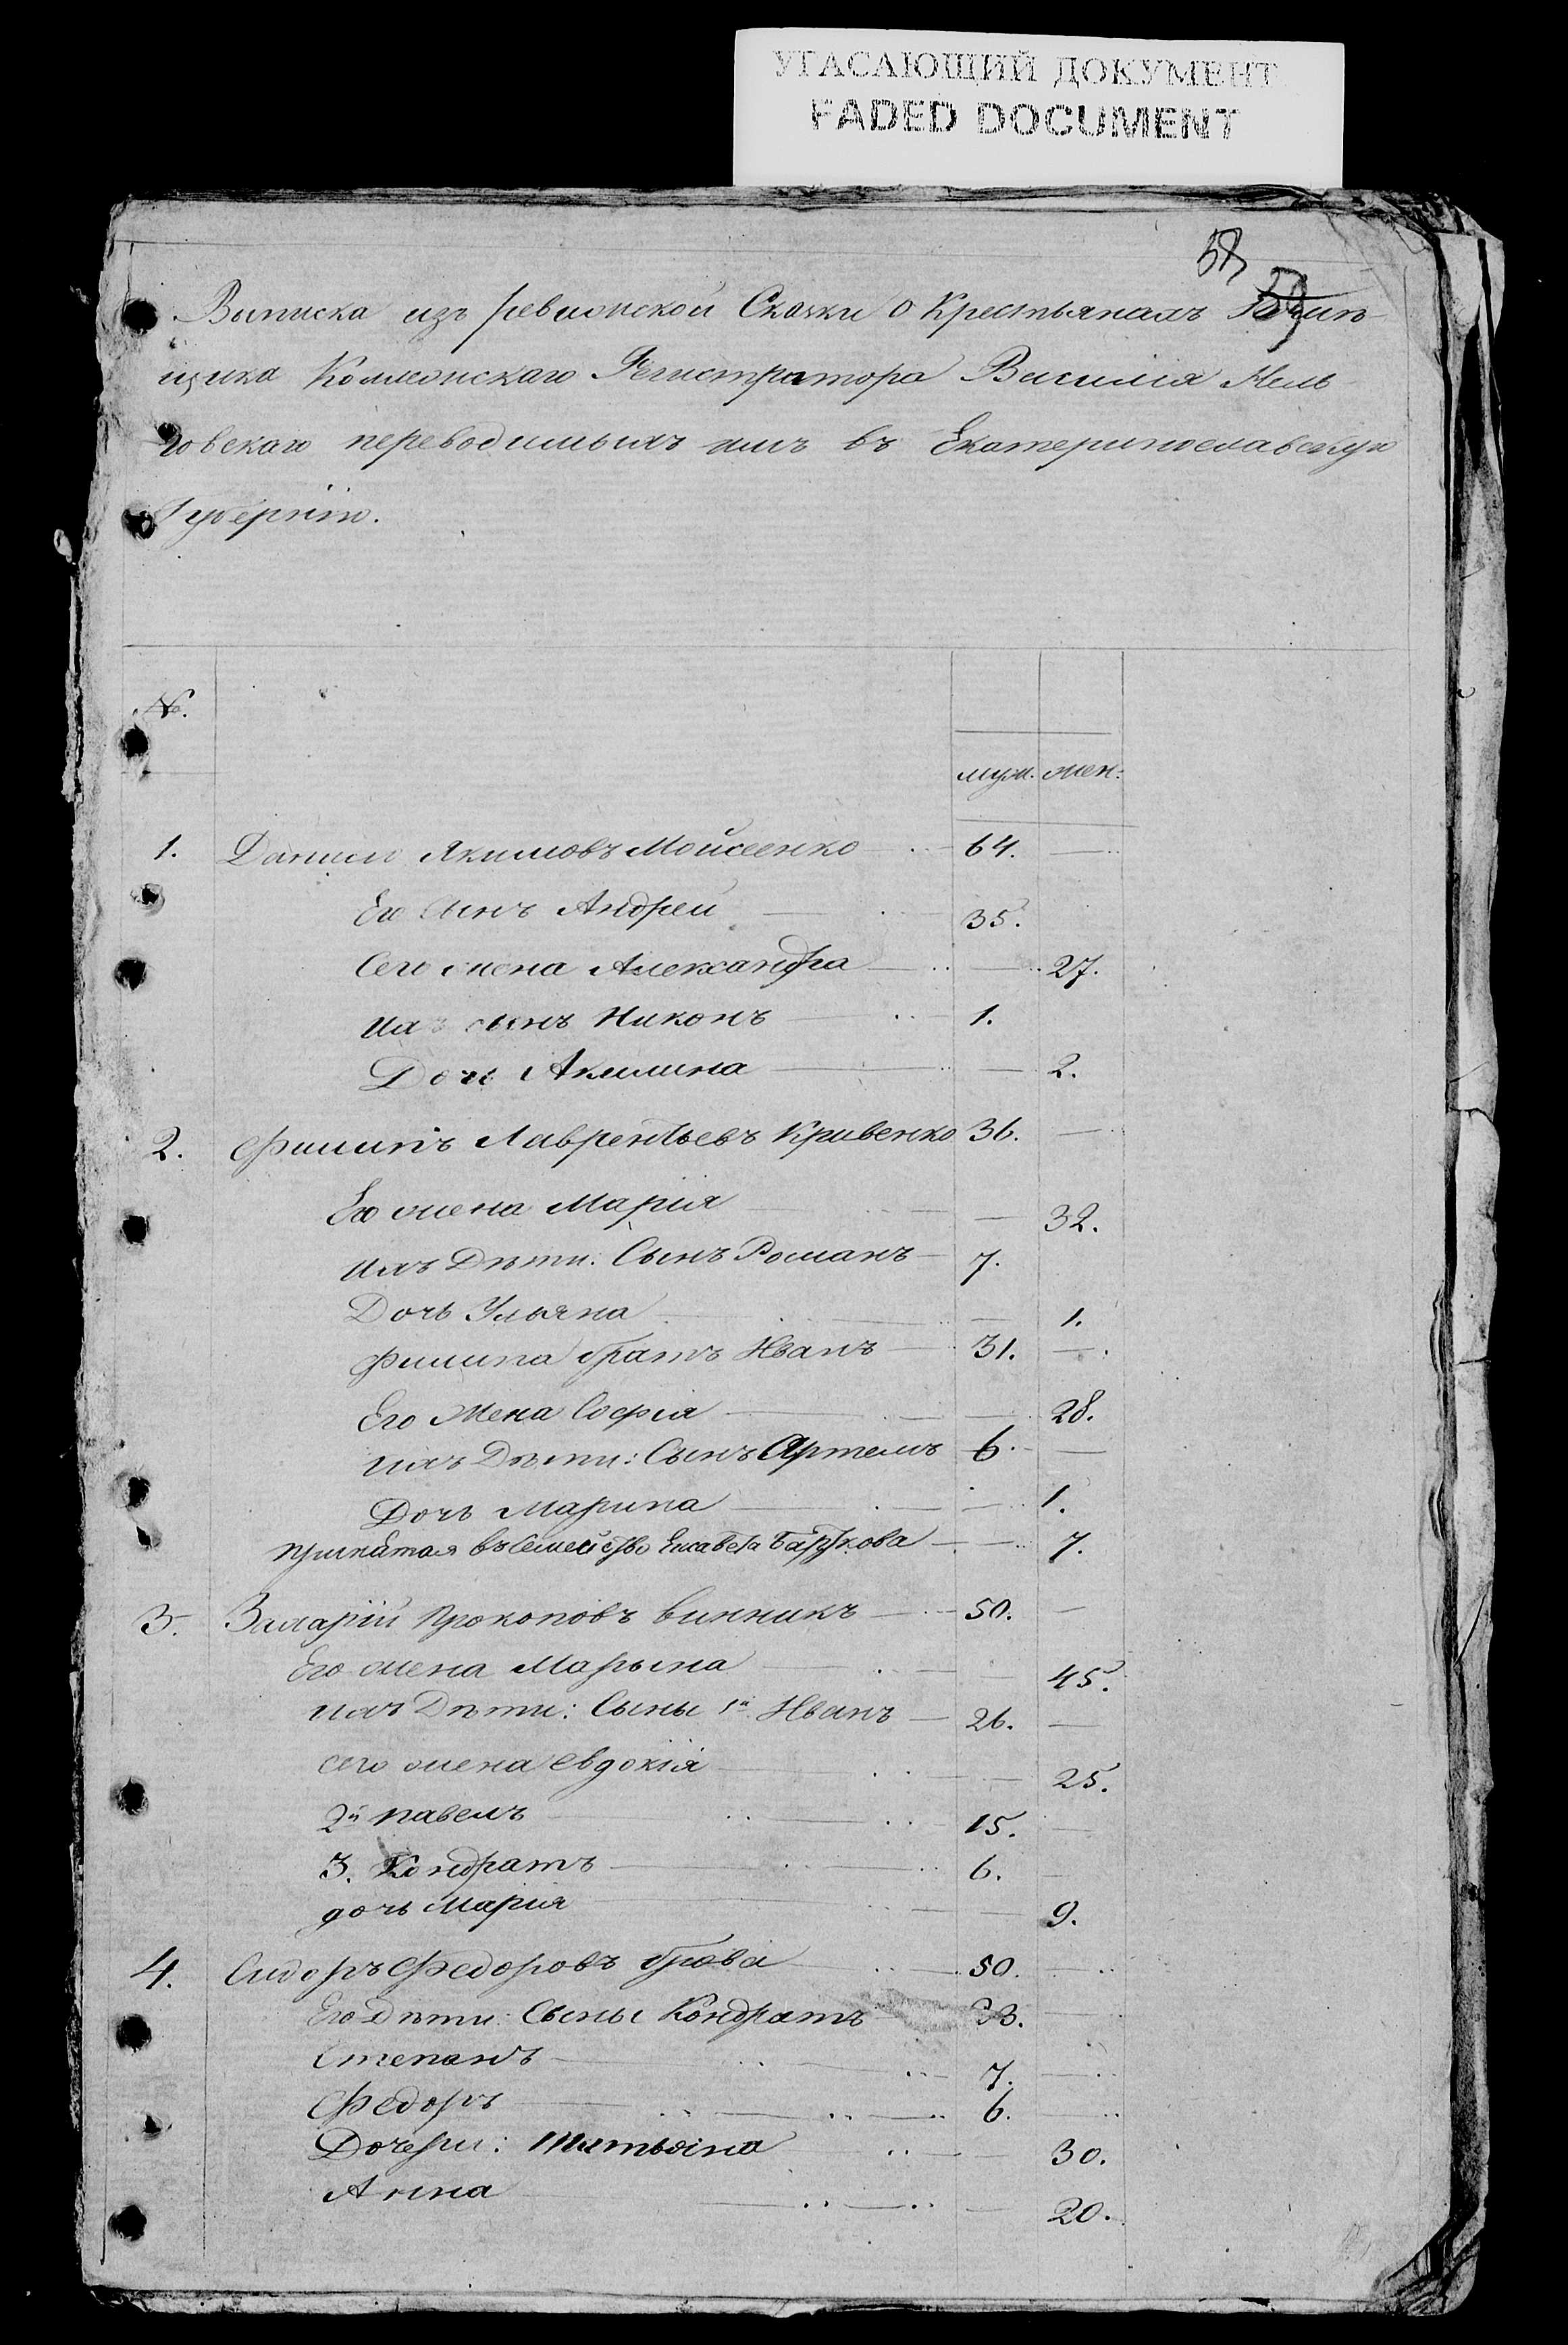 УГАСАЮЩИЙ ДОКУМЕНТ
FADED DOCUMENT
58
59
Выписка изъ ревизской Сказки о Крестьянахъ
щика Коллежскаго Регистратора Василія
переводимыхъ имъ въ Екатеринославскую
Губернію.
№.
муж. жен:
1. Данило Якимовъ Мойсеенко 64. —
Его Сынъ Андрей 35.
Сего жена Александра — 27.
Ихъ сынъ Никонъ 1.
Дочь Акилина — 2.
2. Филипъ Лаврентьевъ Кривенко 36. —
Его жена Марія — 32.
Ихъ Дѣти: Сынъ Романъ 7.
Дочь Ульяна — 1.
Филипа братъ Иванъ 31. —
Его Жена Софія — 28.
Ихъ Дѣти: Сынъ Артемъ 6. —
Дочь Марина — 1.
Принятая въ Семейство Елисавета — 7.
3. Прокоповъ Винникъ 50. —
Его жена Марьина — 45.
Ихъ Дѣти: Сыны 1й Иванъ 26. —
Сего жена Евдокія — 25.
2й Павелъ 15. —
3. Кондратъ 6. —
дочь Марія — 9.
4. Сидоръ Федоровъ 50. —
Его Дѣти: Сыны Кондратъ —
Степанъ 7. —
Федоръ 6. —
Дочери: Татьяна — 30.
Анна — 20.